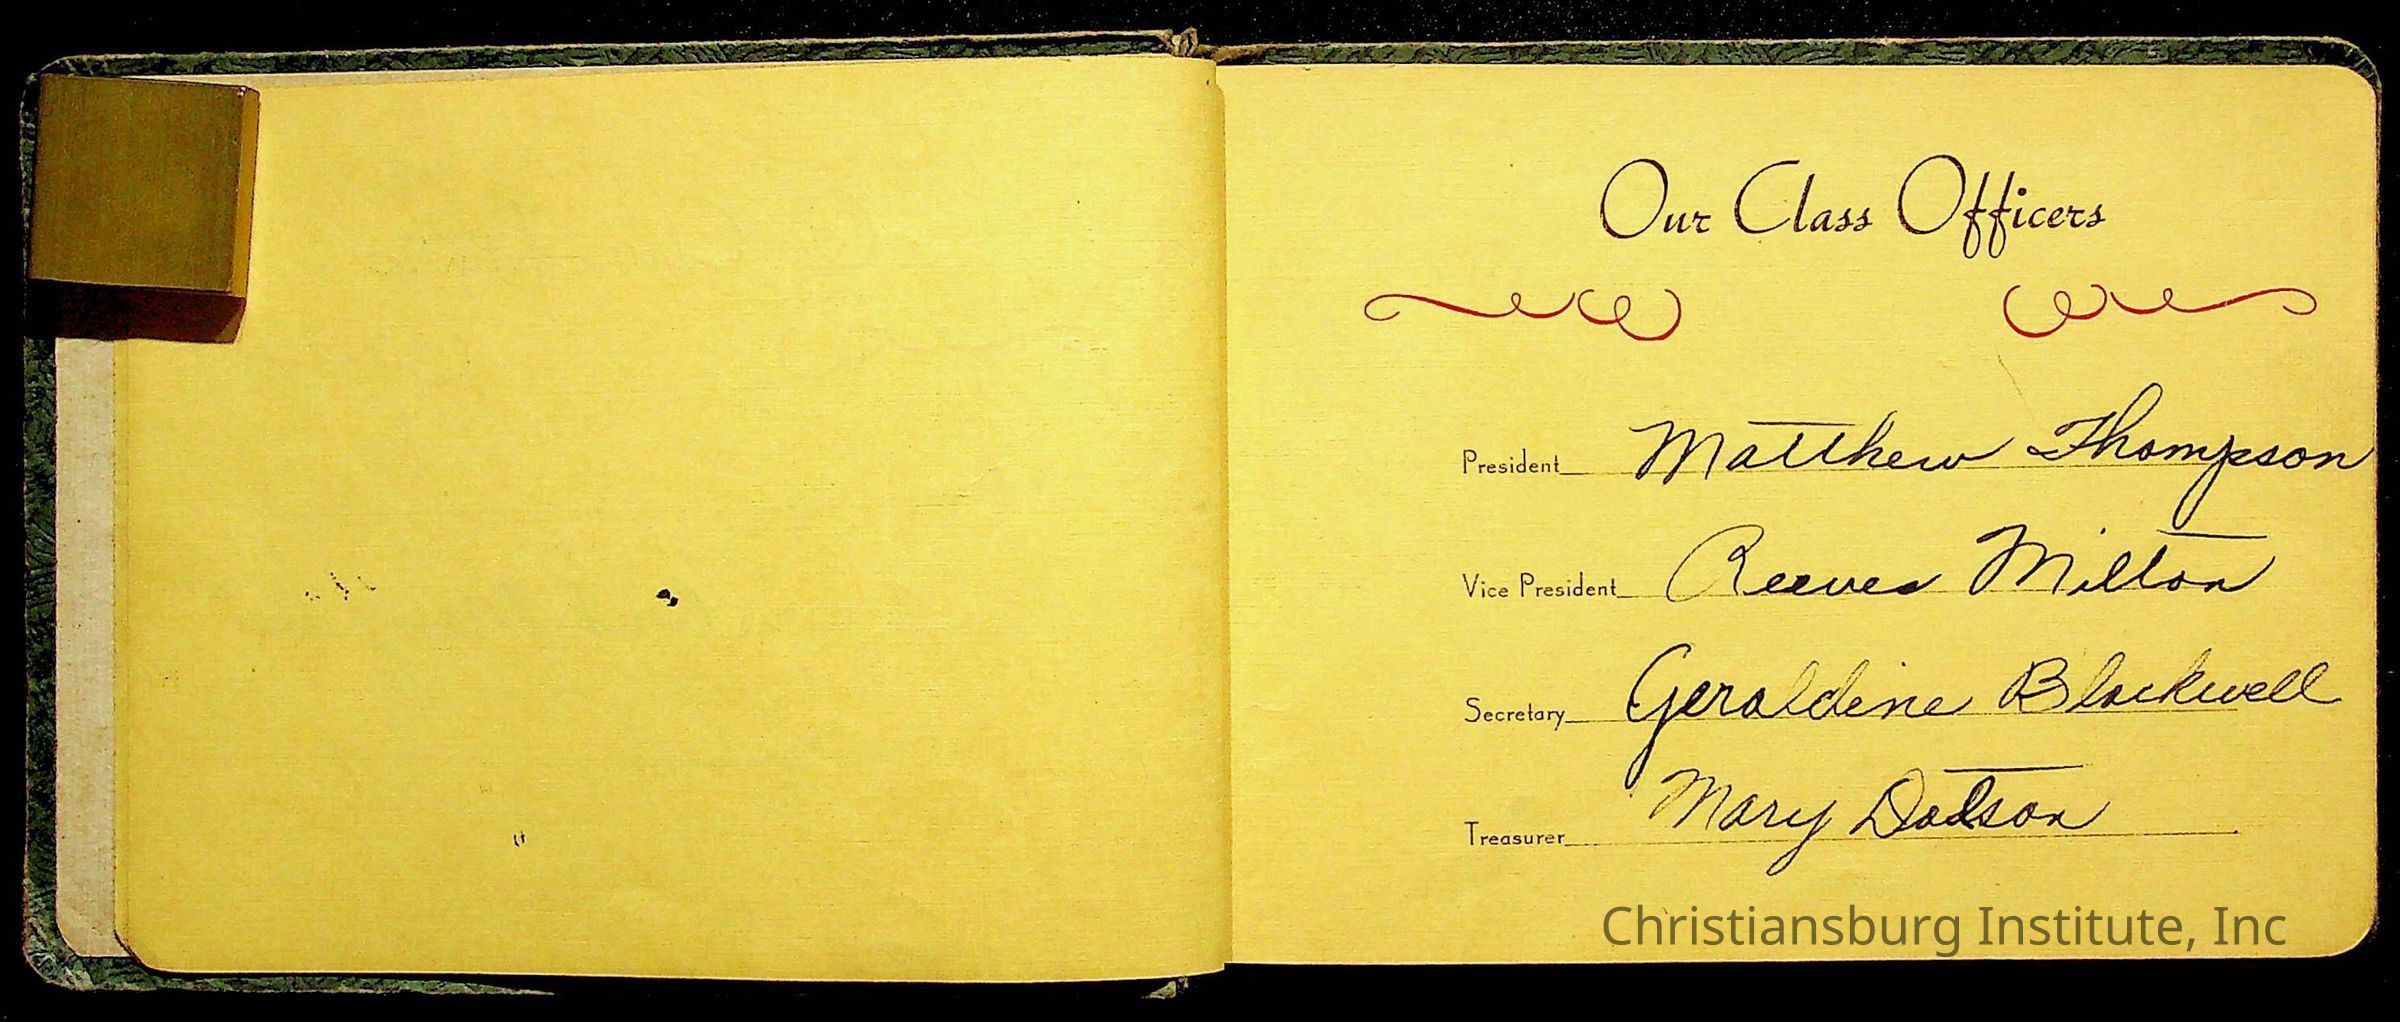 Our Class Officers
President Matthew Thompson
Vice President Reeves Milton
Secretary Geraldine Blackwell
Treasurer Mary Dotson
Christiansburg Institute, Inc